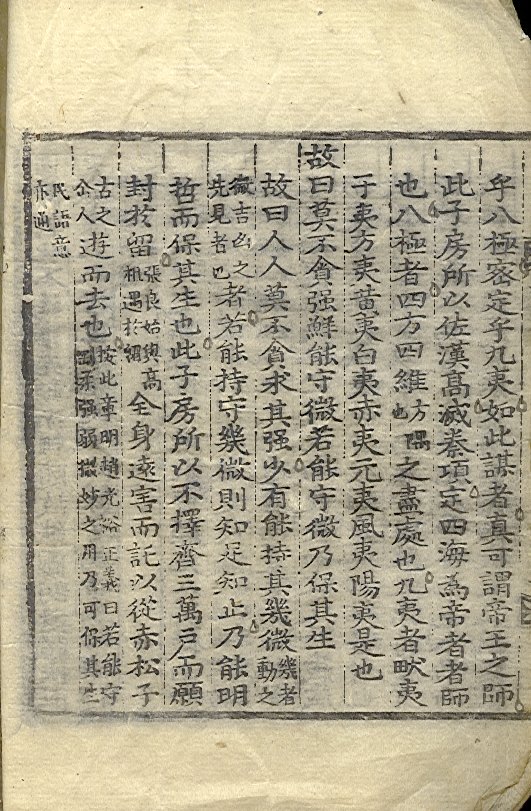 乎八極密定乎九夷如此謀者真可謂帝王之師
此子房所以佐漢高滅秦項定四海為帝者者師
也八極者四方四維方隅也之盡處也九夷者畎夷
于夷方夷黃夷白夷赤夷元夷風夷陽夷是也
故曰莫不貪强鮮能守微若能守微乃保其生
故曰人人莫不貪求其强少有能持其幾微幾者動之
微吉凶之先見者也者若能持守幾微則知足知止乃能明
哲而保其生也此子房所以不擇齊三萬戶而願
封於留張良始與高祖遇於留全身遠害而託以從赤松子
古之仚人遊而去也按此章明趙光裕正義曰若能守剛柔强弱微妙之用乃可保其生
民語意亦通